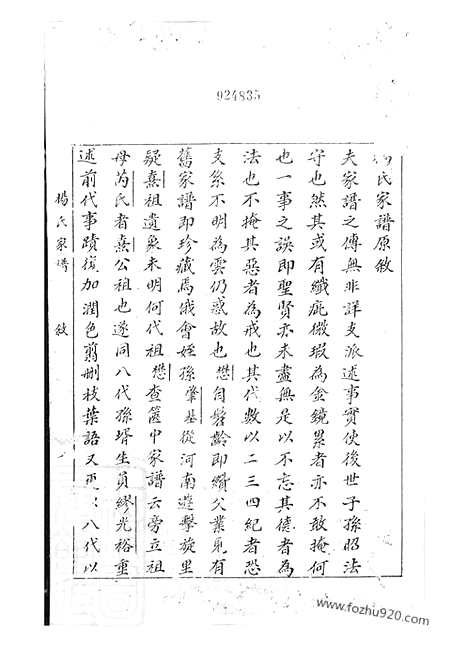 924835
氏家譜原敘
夫家譜之傳無非詳支派述事實使後世子孫昭法
守也然其或有纖疵微瑕為金鏡累者亦不敢掩何
也一事之誤即聖賢亦未盡無是以不忘其德者為
法也不掩其惡者為戒也其代數以二三四紀者恐
支系不明為雲仍惑故也懋自髫齡即纘父業見有
舊家譜即珍藏焉俄會姪孫肇基從河南遊擊旋里
疑熹祖遺象未明何代祖懋查篋中家譜云旁立祖
母芮氏者熹公祖也遂同八代孫壻生員繆光裕重
述前代事蹟復加潤色剪刪枝葉語又更八代以
楊氏家譜 敘 一
www.fozhu920.com